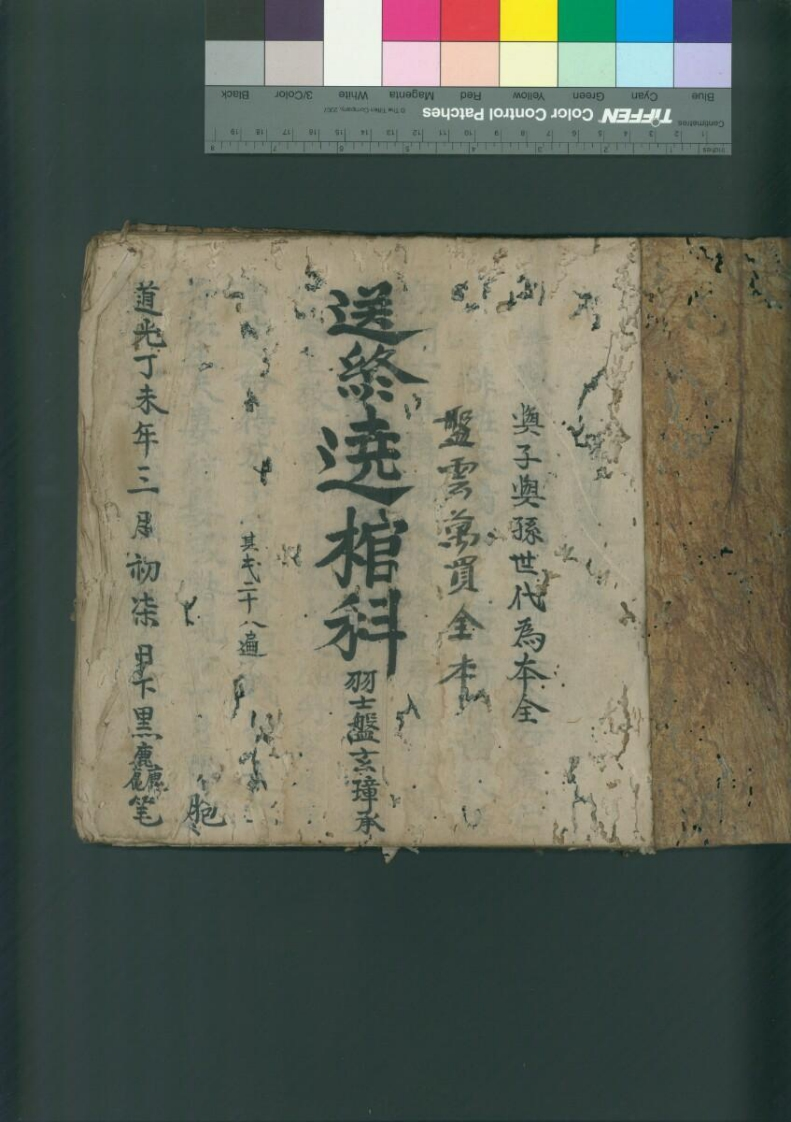 Blue Cyan Green Yellow Red Magenta White 3/Color Black
Centimetres TIFFEN Color Control Patches © The Tiffen Company, 2007
1 2 3 4 5 6 7 8 9 10 11 12 13 14 15 16 17 18 19
Inches 1 2 3 4 5 6 7 8
與子與孫世代為本全
盤雲萬買全本
送終遶棺科 羽士盤玄璋承
其戋二十八遍
胞
道光丁未年三月初柒日下黑麤笔